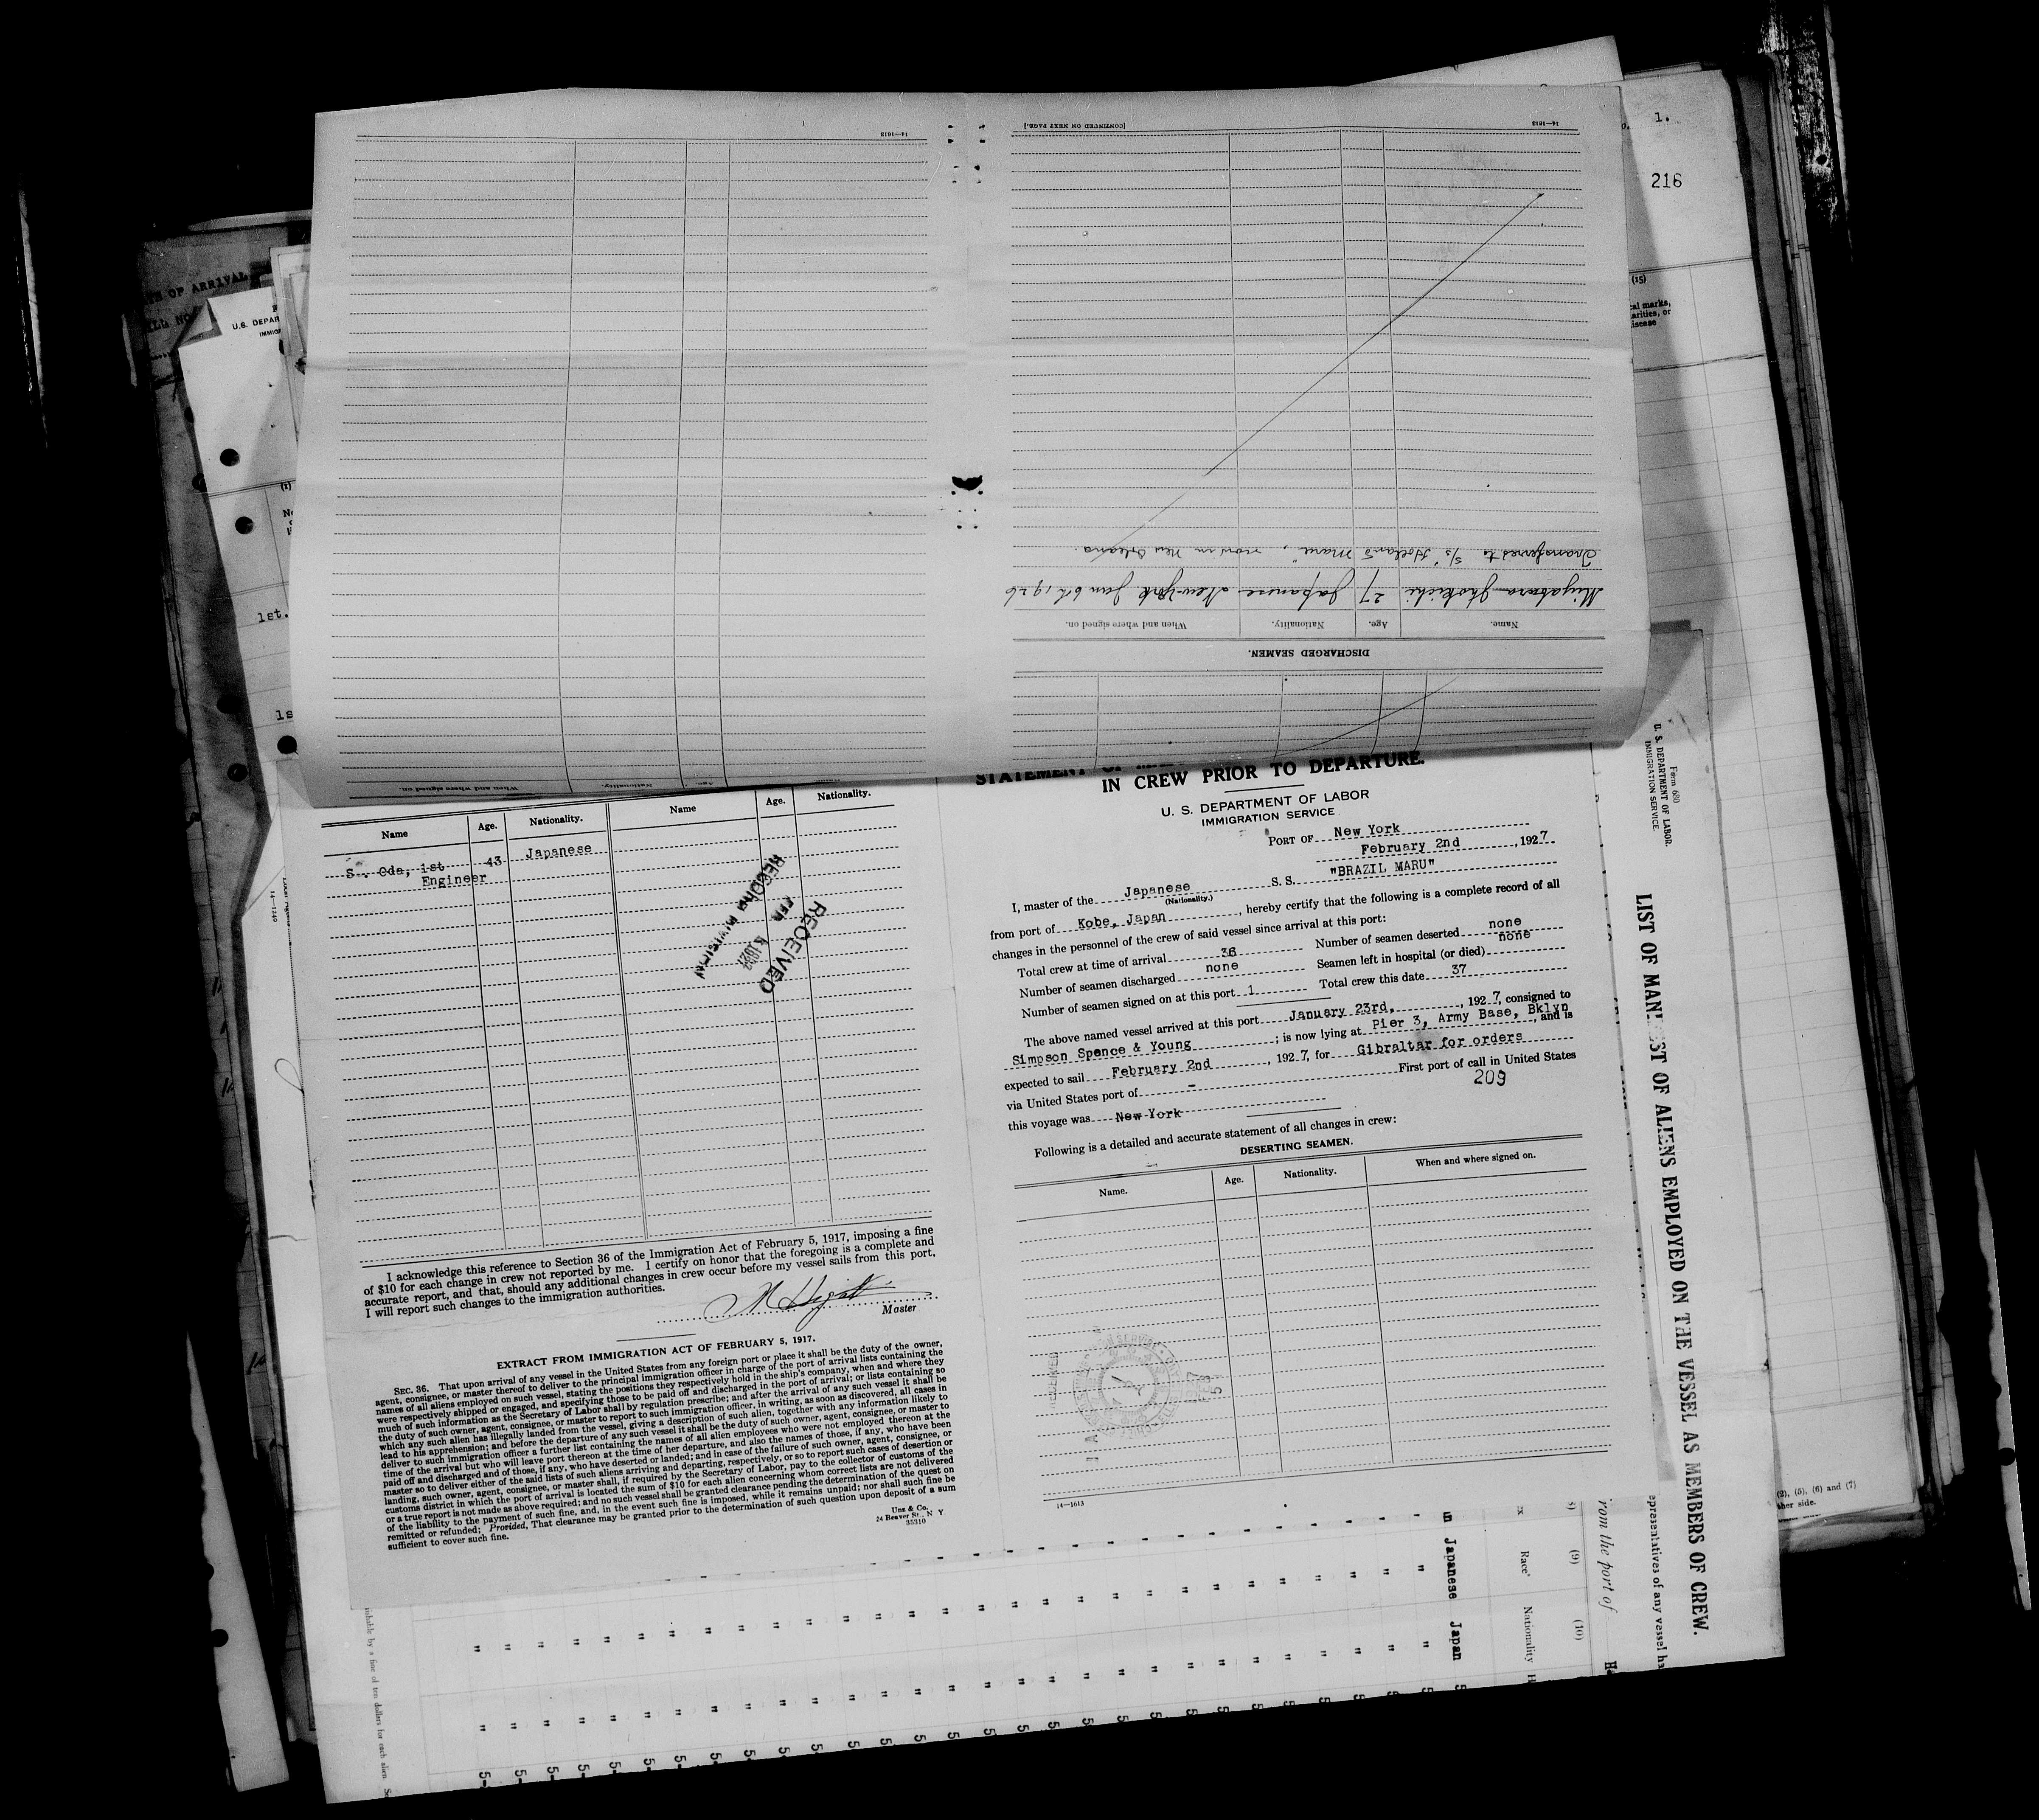 14—1613
[CONTINUED ON NEXT PAGE.]
14—1613
Transferred to S/S "Holland Maru", now in New Orleans.
27 Japanese New-York Jan 6th 1926
Name. Age. Nationality. When and where signed on.
DISCHARGED SEAMEN.
When and where signed on. Nationality. Age. Name.
1.
216
(15)
OF ARRIVAL
U.S. DEPAR
IMMIG
(1)
1st.
14—1240
Name Age. Nationality. Name Age. Nationality.
S. Oda, 1st 43 Japanese
Engineer
RECEIVED
FEB
RECORD DIVISION
I acknowledge this reference to Section 36 of the Immigration Act of February 5, 1917, imposing a fine
of $10 for each change in crew not reported by me. I certify on honor that the foregoing is a complete and
accurate report, and that, should any additional changes in crew occur before my vessel sails from this port,
I will report such changes to the immigration authorities.
Master
EXTRACT FROM IMMIGRATION ACT OF FEBRUARY 5, 1917.
SEC. 36. That upon arrival of any vessel in the United States from any foreign port or place it shall be the duty of the owner,
agent, consignee, or master thereof to deliver to the principal immigration officer in charge of the port of arrival lists containing the
names of all aliens employed on such vessel, stating the positions they respectively hold in the ship's company, when and where they
were respectively shipped or engaged, and specifying those to be paid off and discharged in the port of arrival; or lists containing so
much of such information as the Secretary of Labor shall by regulation prescribe; and after the arrival of any such vessel it shall be
the duty of such owner, agent, consignee, or master to report to such immigration officer, in writing, as soon as discovered, all cases in
which any such alien has illegally landed from the vessel, giving a description of such alien, together with any information likely to
lead to his apprehension; and before the departure of any such vessel it shall be the duty of such owner, agent, consignee, or master to
deliver to such immigration officer a further list containing the names of all alien employees who were not employed thereon at the
time of the arrival but who will leave port thereon at the time of her departure, and also the names of those, if any, who have been
paid off and discharged and of those, if any, who have deserted or landed; and in case of the failure of such owner, agent, consignee, or
master so to deliver either of the said lists of such aliens arriving and departing, respectively, or so to report such cases of desertion or
landing, such owner, agent, consignee, or master shall, if required by the Secretary of Labor, pay to the collector of customs of the
customs district in which the port of arrival is located the sum of $10 for each alien concerning whom correct lists are not delivered
or a true report is not made as above required; and no such vessel shall be granted clearance pending the determination of the quest on
of the liability to the payment of such fine, and, in the event such fine is imposed, while it remains unpaid; nor shall such fine be
remitted or refunded; Provided, That clearance may be granted prior to the determination of such question upon deposit of a sum
sufficient to cover such fine.
Unz & Co.
24 Beaver St., N Y
35310
STATEMENT OF
IN CREW PRIOR TO DEPARTURE.
U. S. DEPARTMENT OF LABOR
IMMIGRATION SERVICE
PORT OF New York
February 2nd, 1927
I, master of the Japanese S. S. "BRAZIL MARU"
(Nationality.)
from port of Kobe, Japan, hereby certify that the following is a complete record of all
changes in the personnel of the crew of said vessel since arrival at this port:
Total crew at time of arrival 36 Number of seamen deserted none
Number of seamen discharged none Seamen left in hospital (or died) none
Number of seamen signed on at this port 1 Total crew this date 37
The above named vessel arrived at this port January 23rd, 1927, consigned to
Simpson Spence & Young; is now lying at Pier 3, Army Base, Bklyn, and is
expected to sail February 2nd, 1927, for Gibraltar for orders
via United States port of - First port of call in United States
this voyage was New York
209
Following is a detailed and accurate statement of all changes in crew:
DESERTING SEAMEN.
Name. Age. Nationality. When and where signed on.
14—1613
Form 680
U. S. DEPARTMENT OF LABOR.
IMMIGRATION SERVICE.
LIST OF MANIFEST OF ALIENS EMPLOYED ON THE VESSEL AS MEMBERS OF CREW.
epresentatives of any vessel ha
rom the port of
(9)
(10)
Race
Nationality
Japanese
Japan
(2), (5), (6) and (7)